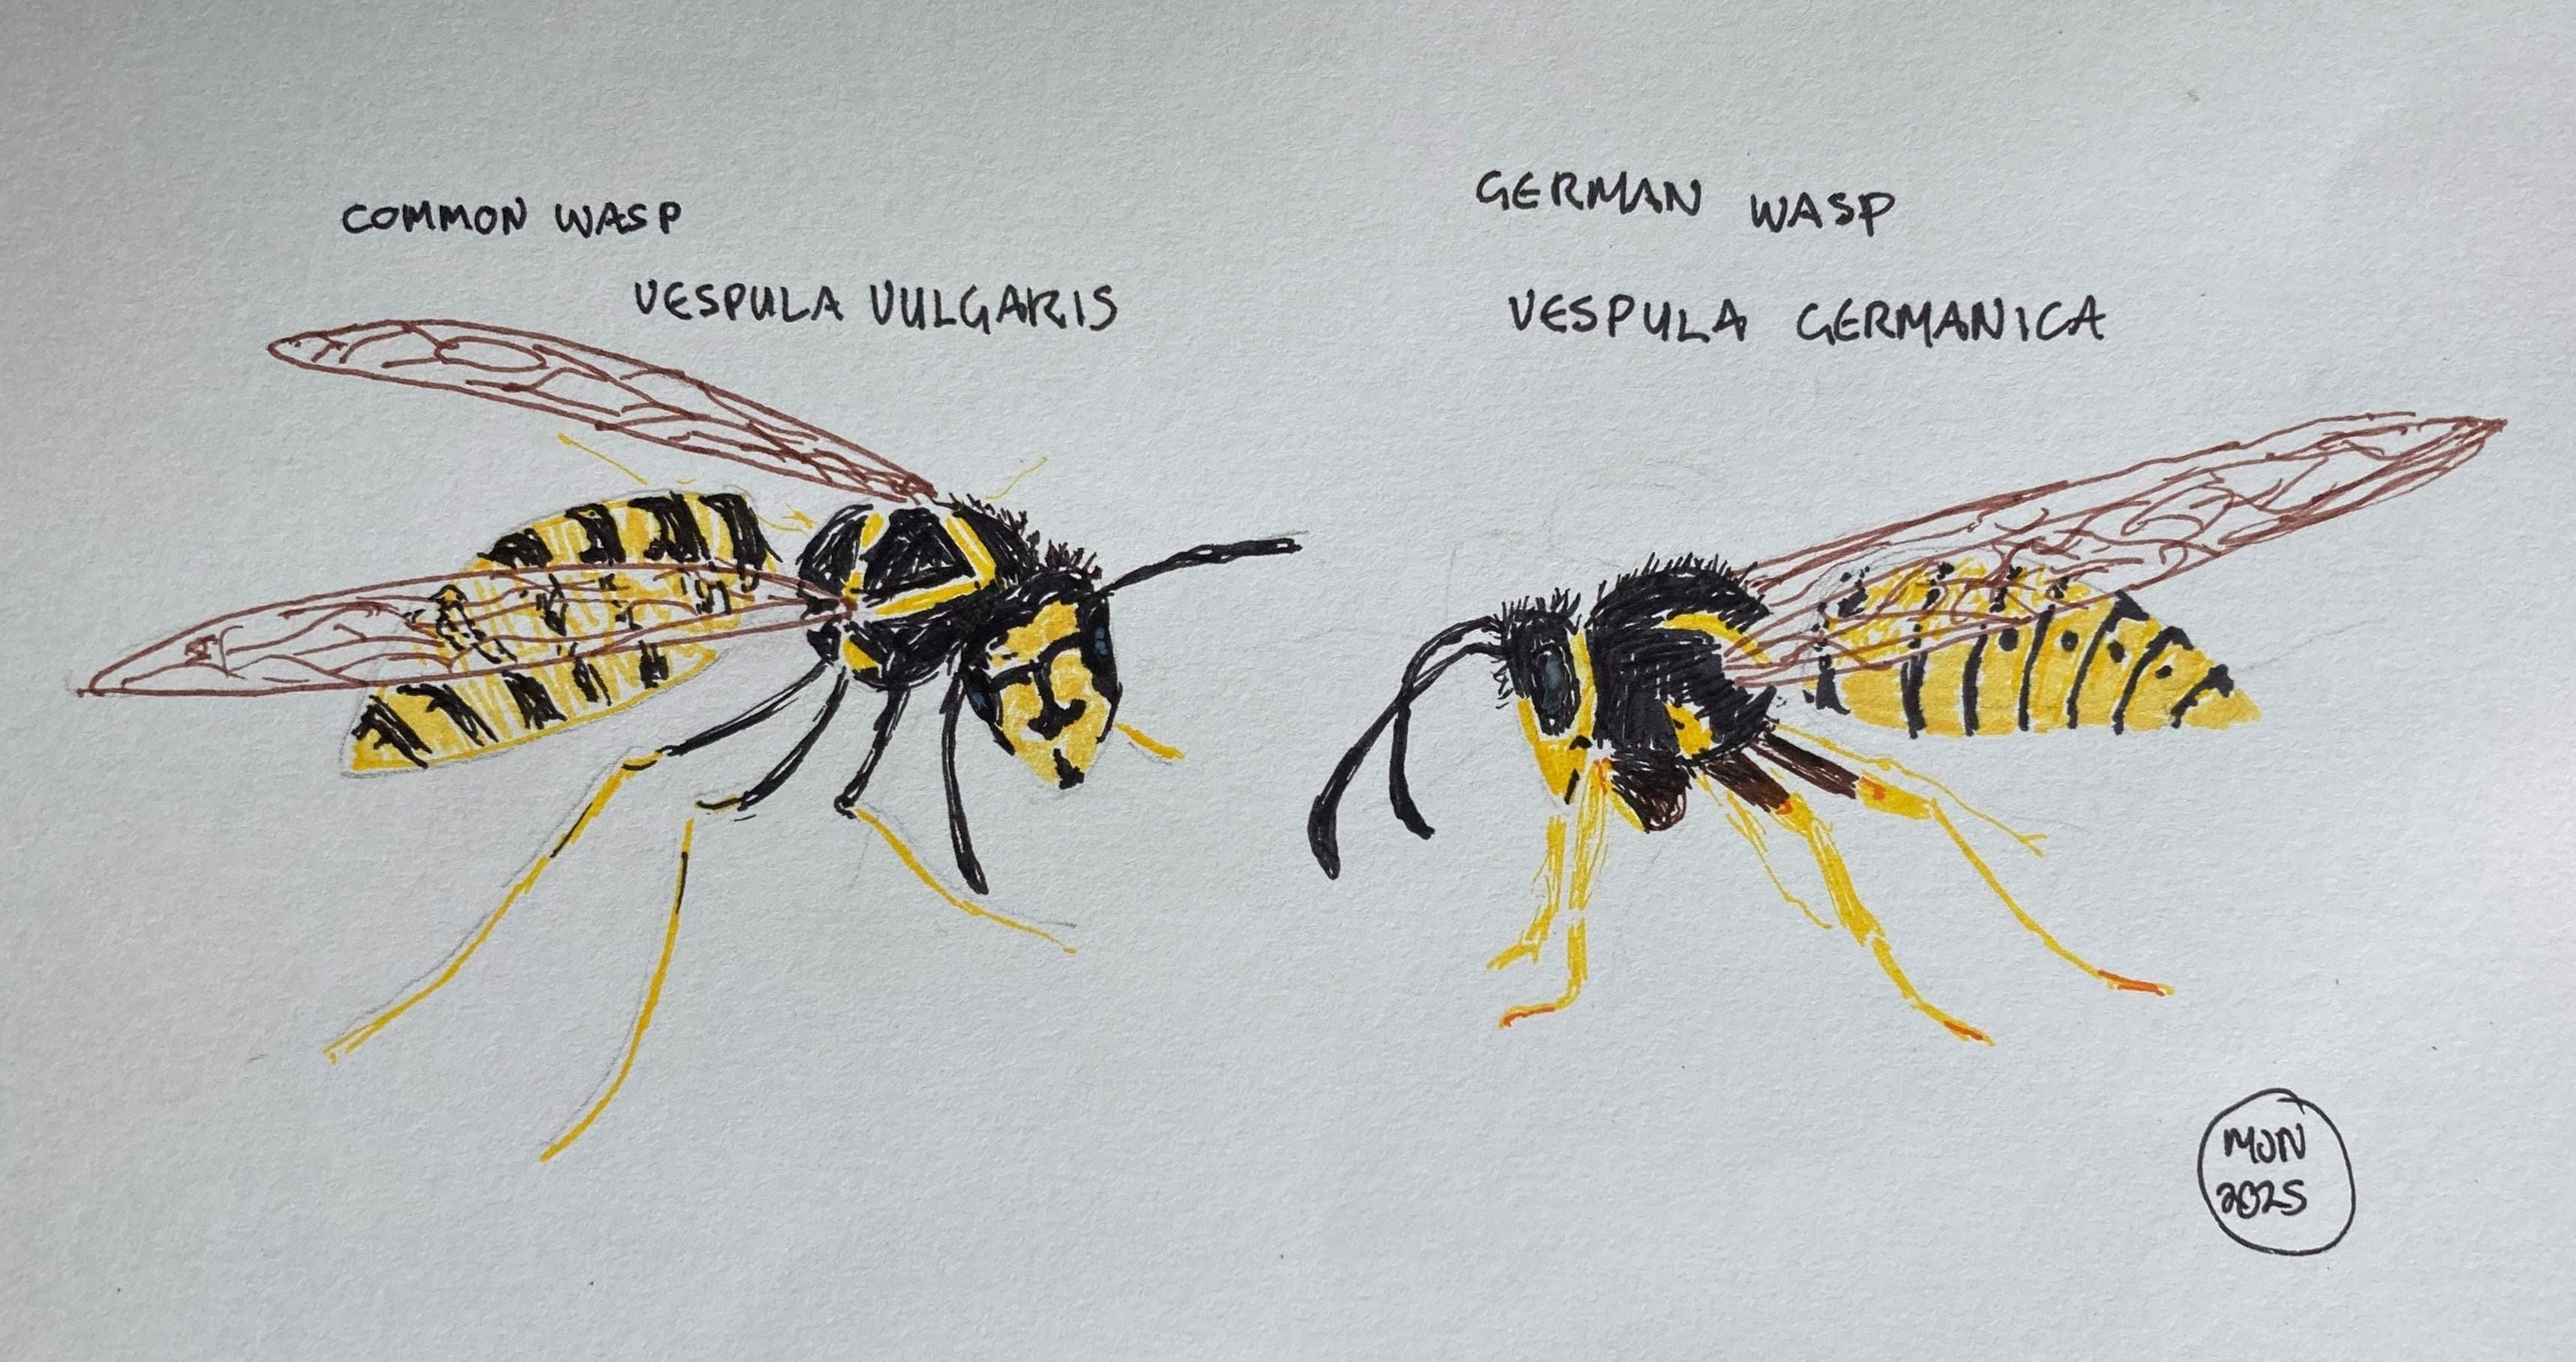 COMMON WASP
VESPULA VULGARIS
GERMAN WASP
VESPULA GERMANICA
MJN
2025